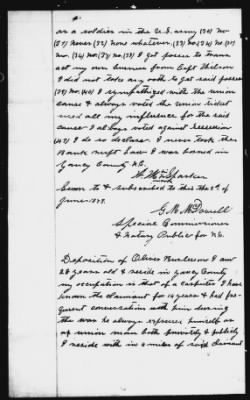 as a soldier in the U.S. army (36) no
(37) never (32) none whatever (33) no (34) no (35)
no. (36) no. (37) no (38) I got passes to
act my own business from Capt
I did not take any oath to get said passes
(39) No. (40) I sympathized with the union
cause & always voted the union ticket
used all my influence for the said
cause I always voted against secession
(43) I do so declare. I never took the
Bankrupt Law I was born in
Yancy County N.C.
W. Wm Parker
Sworn to & subscribed to this the 9th of
June 1877.
G. M. McDowell
Special Commissioner
& Notary Public for N.C.
Deposition of Oliver I am
28 years old & reside in Yancy County
my occupation is that of a carpenter I have
known the claimant for 14 years & had fre-
quent conversation with him during
the war he always expressed himself as
a union man both privately & publicly
I reside with in 2 miles of said claimant